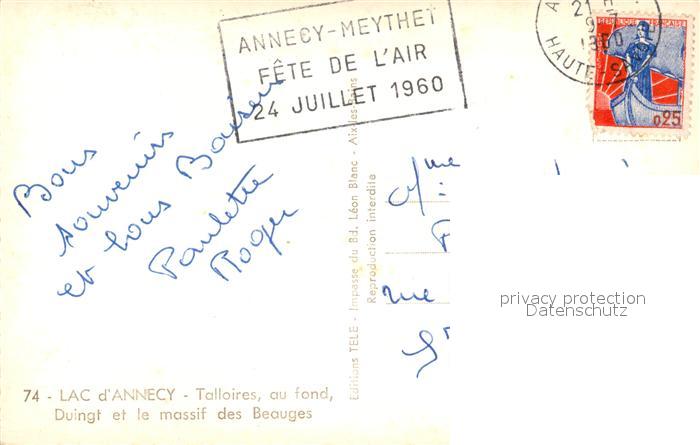 ANNECY-MEYTHET
FÊTE DE L'AIR
24 JUILLET 1960
21
1960
HAUTE-S
REPUBLIQUE FRANÇAISE
0,25
Bons
souvenirs
et tous Baisers
Paulette
Roger
Editions TELE - Impasse du Bd. Léon Blanc - Aix-les-Bains
Reproduction interdite
Mme
rue
St
privacy protection
Datenschutz
74 - LAC d'ANNECY - Talloires, au fond,
Duingt et le massif des Beauges